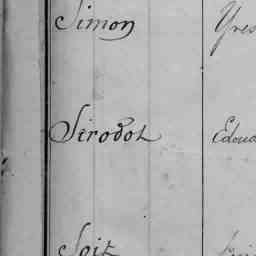 Simon Yves
Sirodot Edoua
Soit